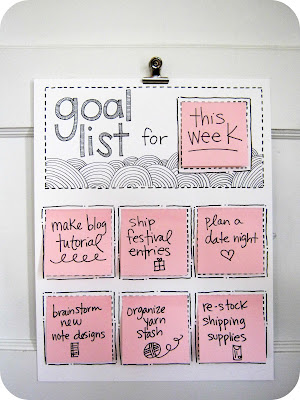 goal
list for
this
week
make blog
tutorial
ship
festival
entries
plan a
date night
brainstorm
new
note designs
organize
yarn
stash
re-stock
shipping
supplies